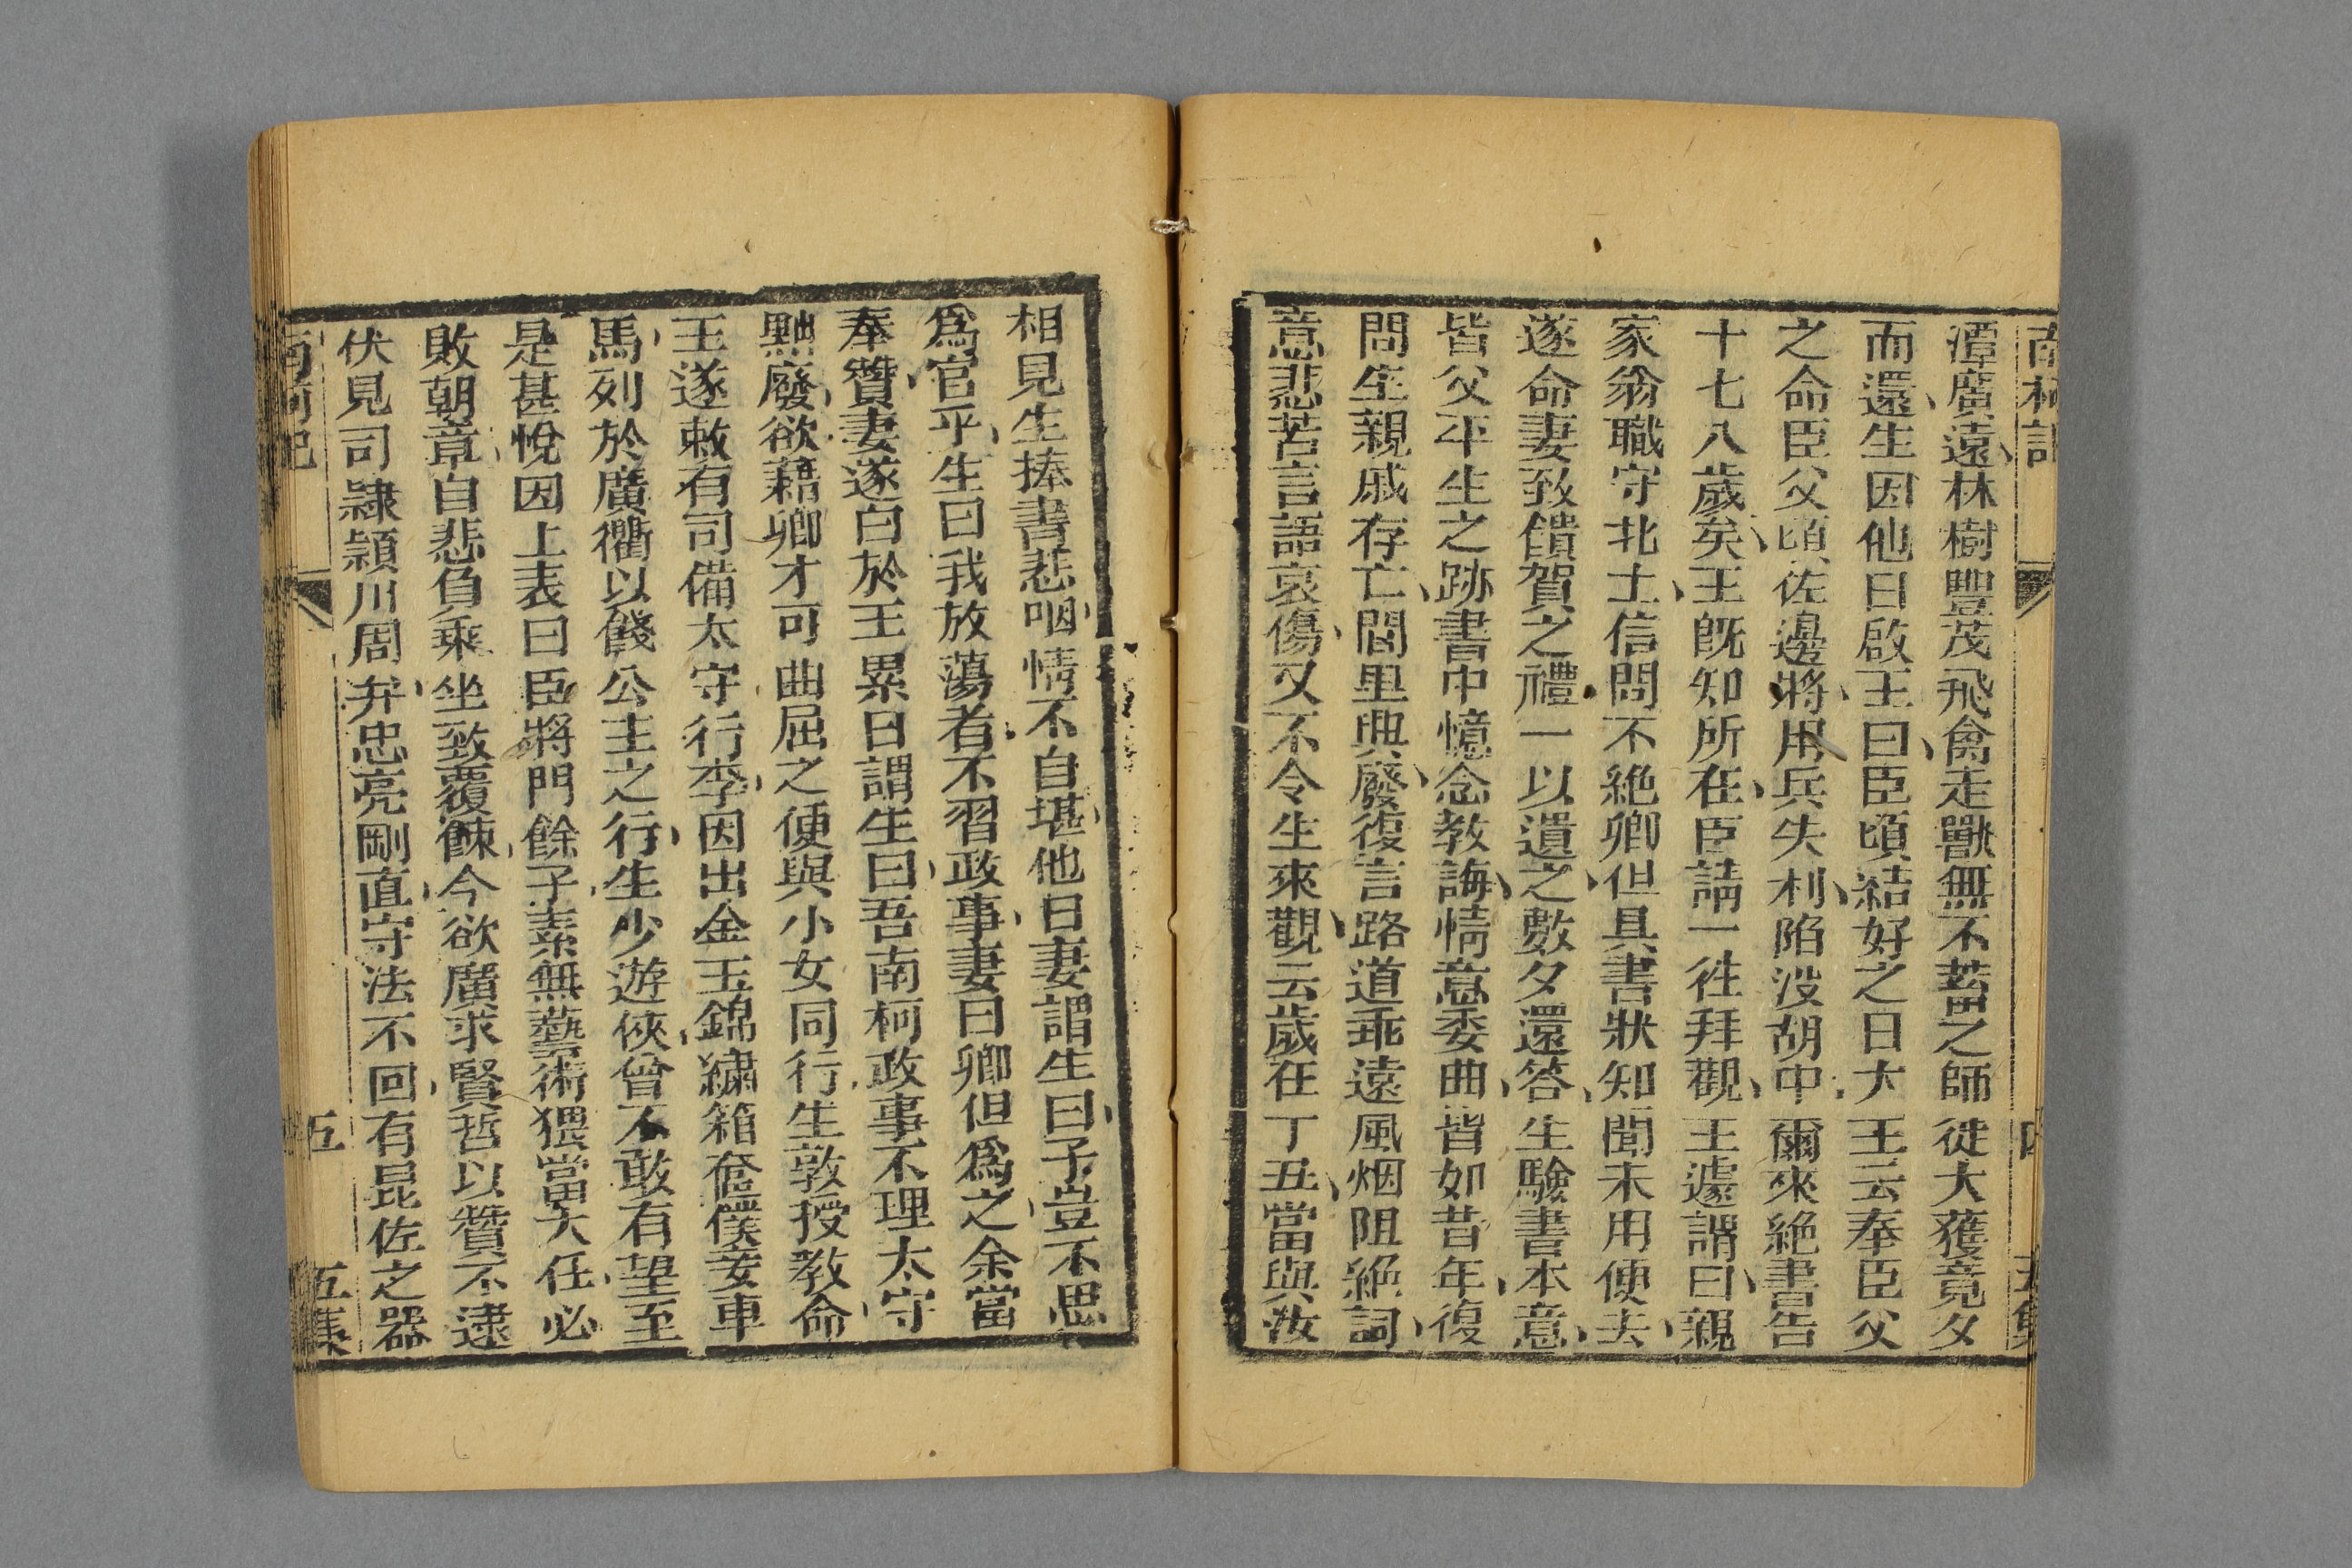 南柯記 四 五集
潭廣遠林樹豐茂飛禽走獸無不蓄之師徒大獲竟夕
而還生因他日啟王曰臣頃結好之日大王云奉臣父
之命臣父頃佐邊將用兵失利陷沒胡中爾來絕書告
十七八歲矣王旣知所在臣請一往拜觀王遽謂曰親
家翁職守北土信問不絕卿但具書狀知聞未用便去
遂命妻致饋賀之禮一以遺之數夕還答生驗書本意
皆父平生之跡書中憶念教誨情意委曲皆如昔年復
問生親戚存亡閭里興廢復言路道乖遠風烟阻絕詞
意悲苦言語哀傷又不令生來觀云歲在丁丑當與汝
相見生捧書悲咽情不自堪他日妻謂生曰子豈不思
爲官乎生曰我放蕩者不習政事妻曰卿但爲之余當
奉贊妻遂白於王累日謂生曰吾南柯政事不理太守
黜廢欲藉卿才可曲屈之便與小女同行生敦授教命
王遂敕有司備太守行李因出金玉錦繡箱奩僕妾車
馬列於廣衢以餞公主之行生少遊俠曾不敢有望至
是甚悅因上表曰臣將門餘子素無藝術猥當大任必
敗朝章自悲負乘坐致覆餗今欲廣求賢哲以贊不逮
伏見司隸潁川周弁忠亮剛直守法不回有毘佐之器
南柯記 五 五集